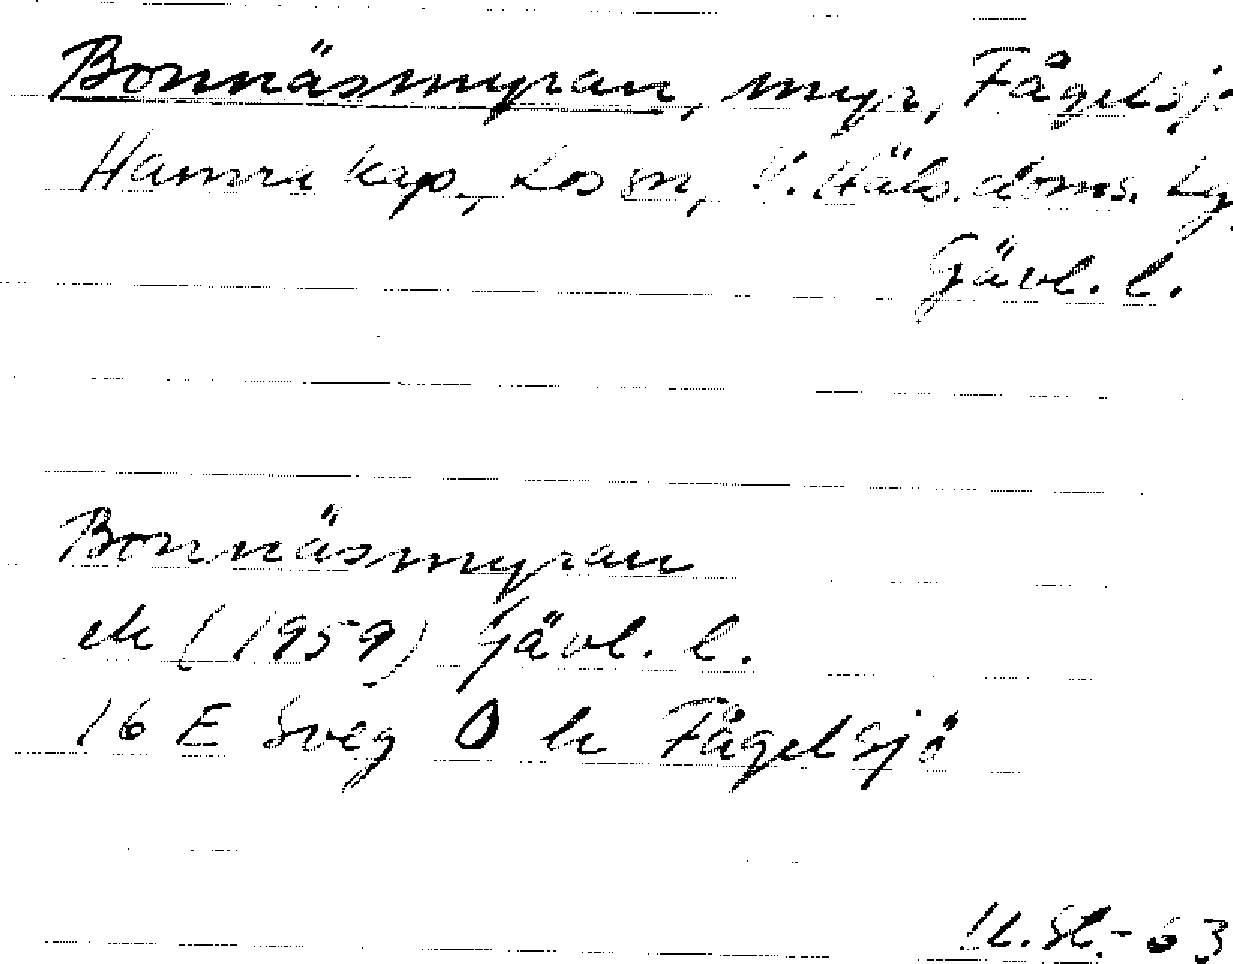 Bonnäsmyran, myr, Fågelsj
Hamra kap., Los sn, V. Häls. doms. Lg
Gävl. l.
Bonnäsmyran
ek (1959) Gävl. l.
16 E Sveg O le Fågelsjö
-63